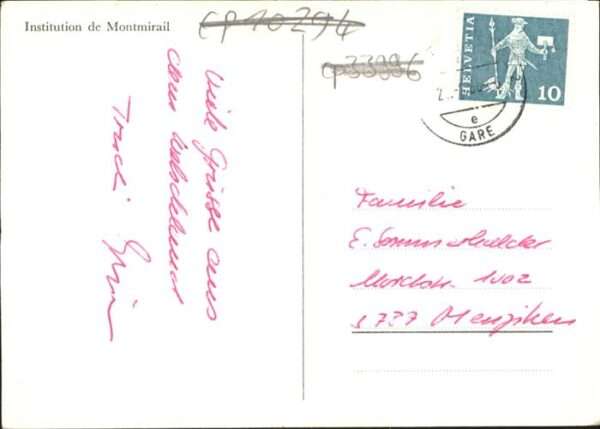 Institution de Montmirail
cp10294
cp33996
HELVETIA
10
e
GARE
Viele Grüsse aus
dem Welschland
Trudi
Familie
E. Sommerhalder
1002
5737 Menziken